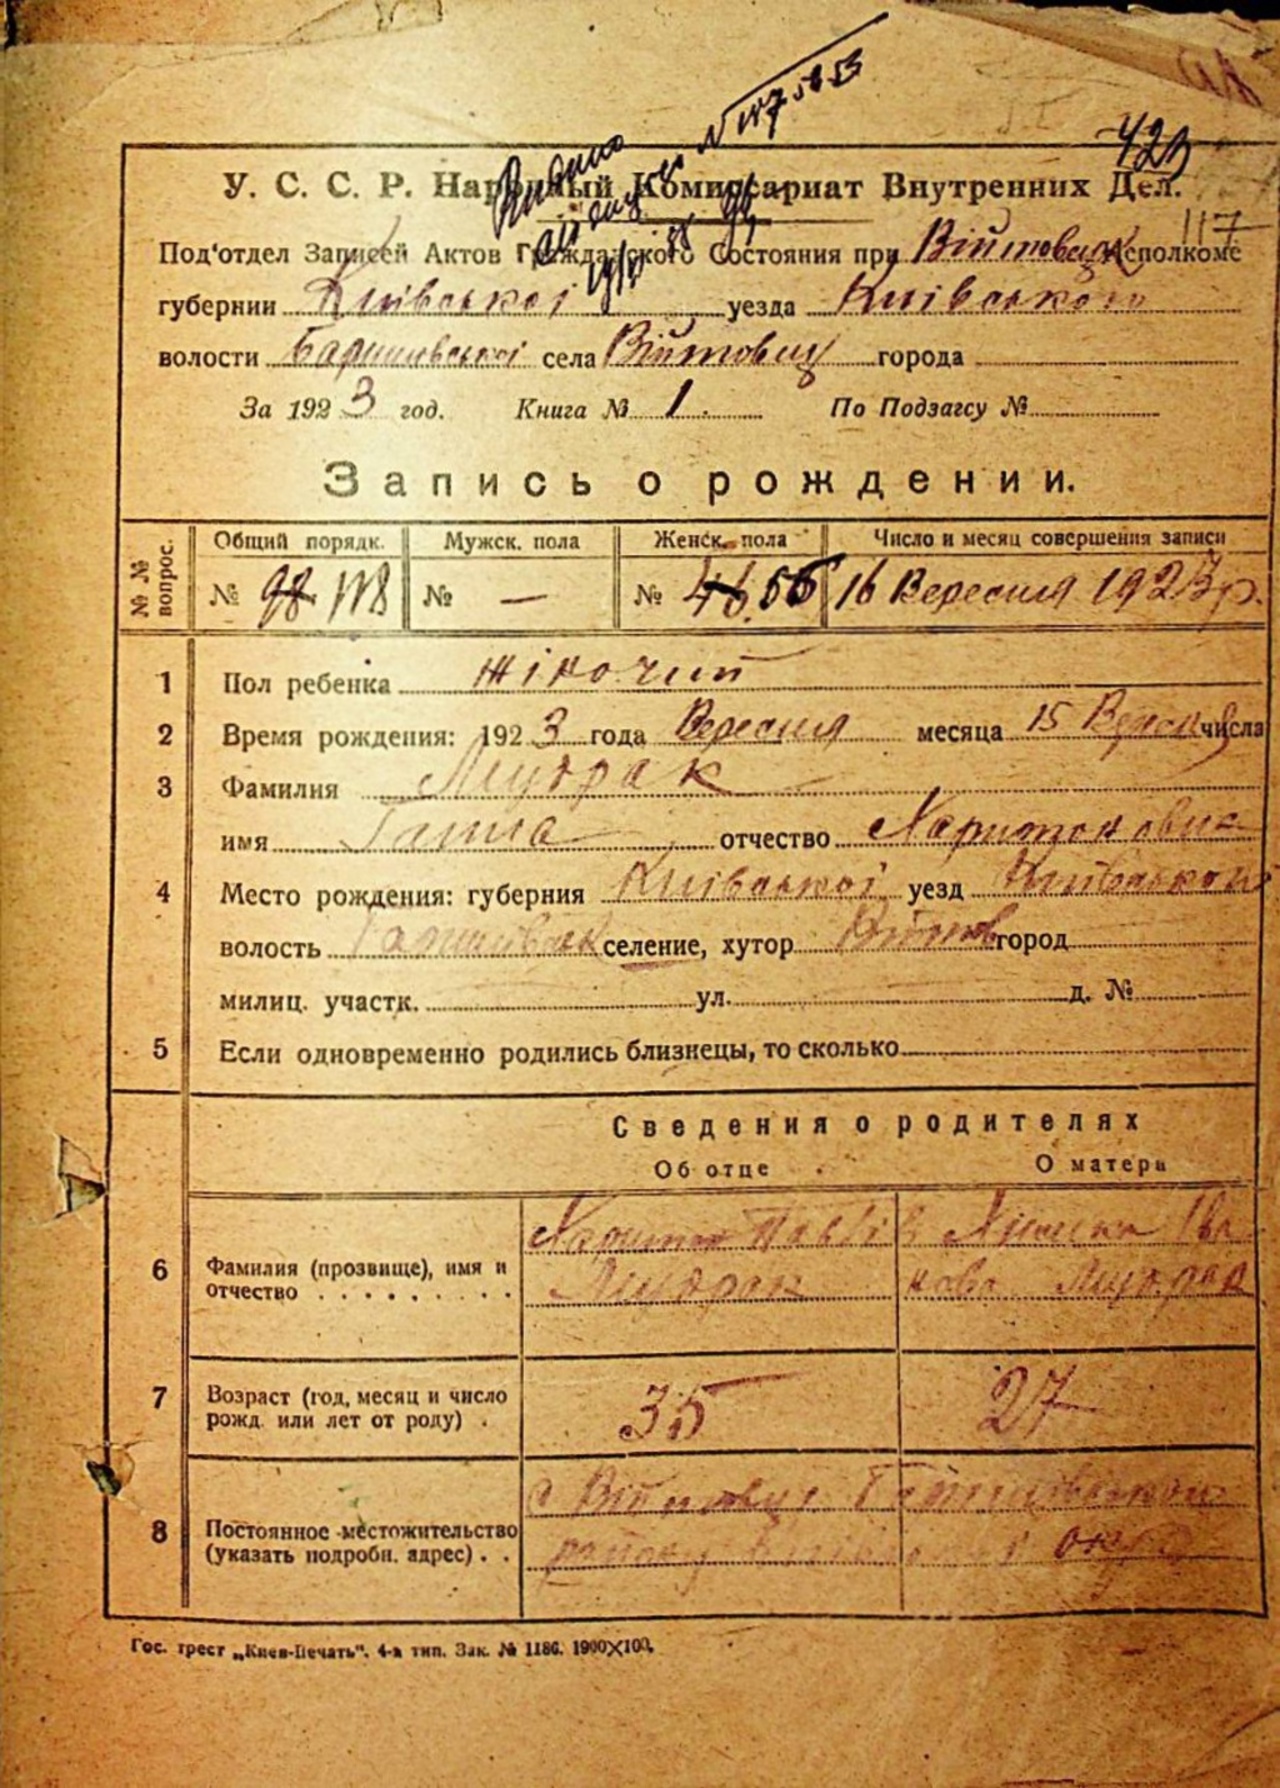 423
У. С. С. Р. Народный Комиссариат Внутренних Дел.
117
Под'отдел Записей Актов Гражданского Состояния при Війтовецк Исполкоме
губернии Київської уезда Київського
волости Баришівської села Війтовці города
За 1923 год. Книга № 1. По Подзагсу №
Запись о рождении.
№ № вопрос. Общий порядк. Мужск. пола Женск. пола Число и месяц совершения записи
№ 98 118 № — № 46. 56 16 Вересня 1923 р.
1 Пол ребенка жіночий
2 Время рождения: 1923 года Вересня месяца 15 Вересня числа
3 Фамилия Мудрак
имя Ганна отчество Харитоновна
4 Место рождения: губерния Київської уезд Київського
волость селение, хутор Війтов город
милиц. участк. ул. д. №
5 Если одновременно родились близнецы, то сколько
Сведения о родителях
Об отце О матери
6 Фамилия (прозвище), имя и
отчество
Харитон Павлів
Мудрак
Ива
нова Мудрак
7 Возраст (год, месяц и число
рожд. или лет от роду) .
35 27
8 Постоянное местожительство
(указать подробн. адрес) . .
с Війтовці
району
Гос. трест „Киев-Печать". 4-я тип. Зак. № 1186. 1900×100.